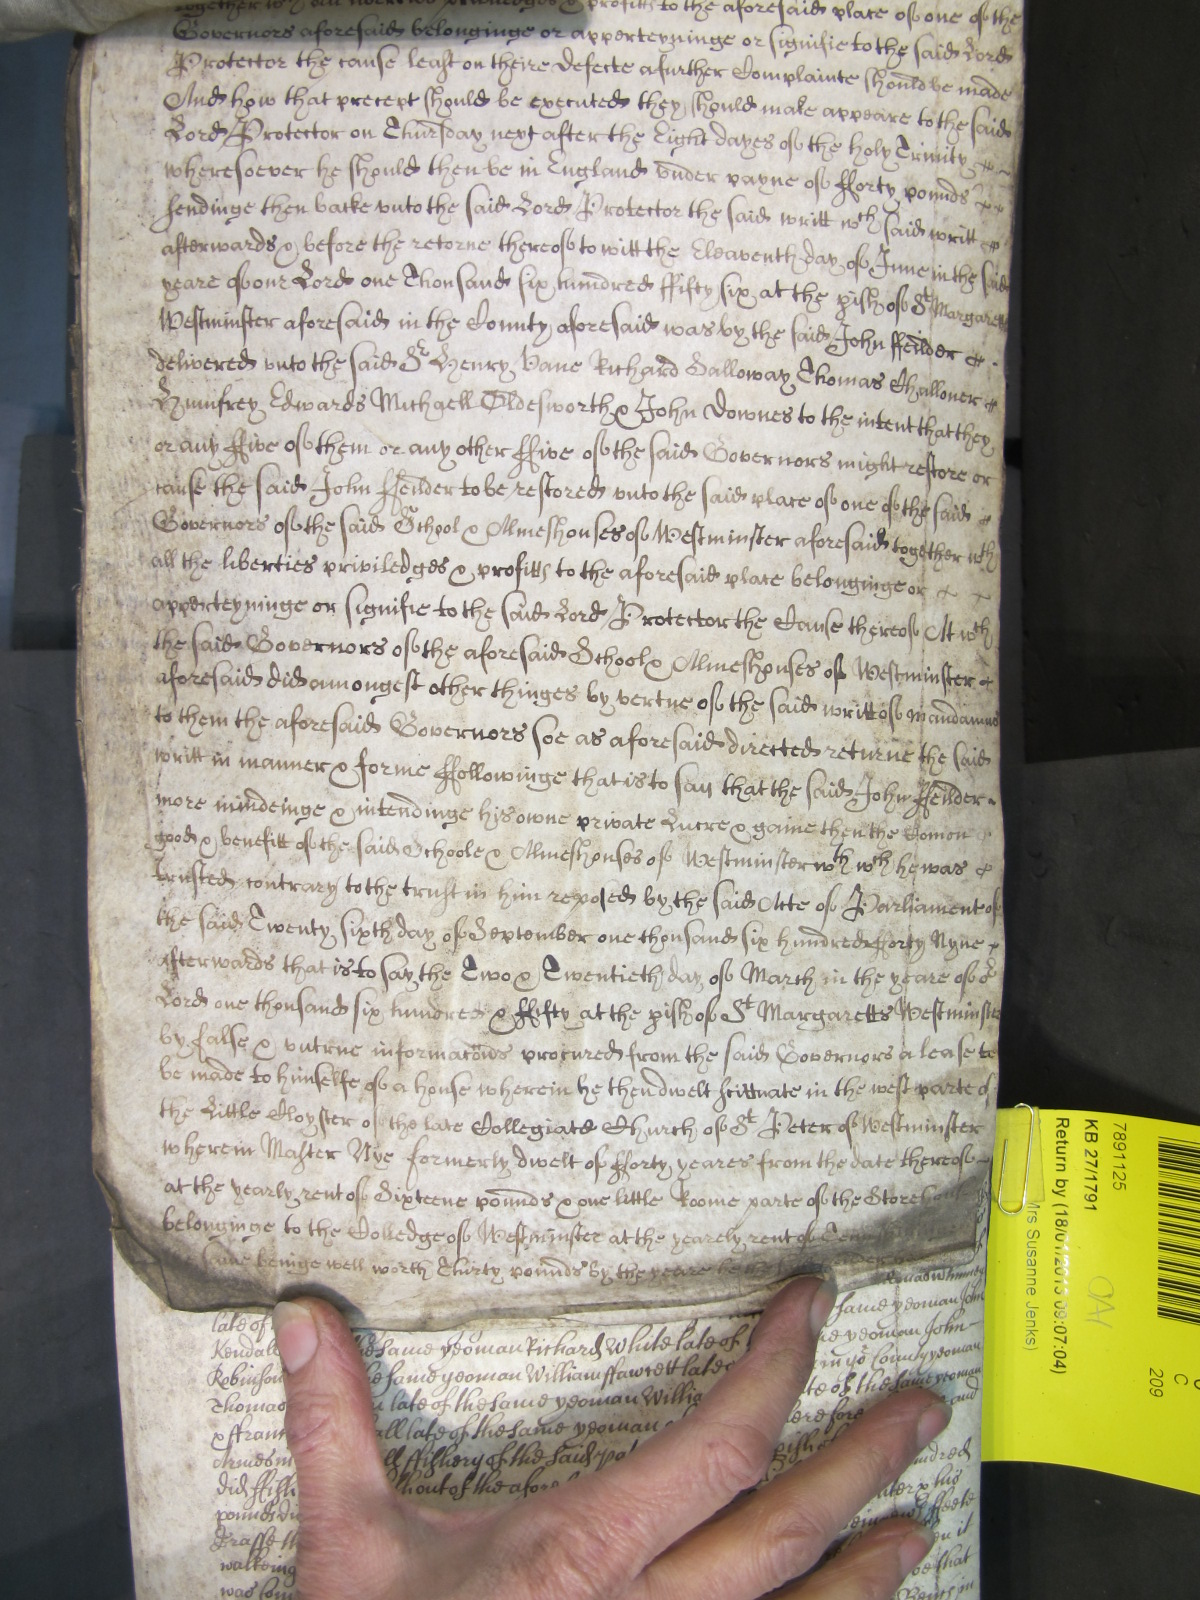 together wth all liberties priviledges & profitts to the aforesaid place of one of the
Governors aforesaid belonginge or apperteyninge or signifie to the said Lord
Protector the cause least on theire defecte a further Complainte should be made
And how that precept should be executed they should make appeare to the said
Lord Protector on Thursday next after the Eight dayes of the holy Trinity
wheresoever he should then be in England vnder payne of fforty pounds
sendinge then backe vnto the said Lord Protector the said writt wch said writt
afterwards & before the retorne thereof to witt the Eleaventh day of June in the said
yeare of our Lord one Thousand six hundred ffifty six at the pish of St Margaretts
Westminster aforesaid in the County aforesaid was by the said John ffeilder
delivered vnto the said Sr Henry Vane Richard Salloway Thomas Challoner
Humfrey Edwards Michaell Oldesworth & John Downes to the intent that they
or any ffive of them or any other ffive of the said Governors might restore or
cause the said John ffeilder to be restored vnto the said place of one of the said
Governors of the said School & Almeshouses of Westminster aforesaid together wth
all the liberties priviledges & profitts to the aforesaid place belonginge or
apperteyninge or signifie to the said Lord Protector the Cause thereof At wch
the said Governors of the aforesaid School & Almeshouses of Westminster
aforesaid did amongest other thinges by vertue of the said writt of mandamus
to them the aforesaid Governors soe as aforesaid directed returne the said
writt in manner & forme ffollowinge that is to say that the said John ffeilder
more mindeinge & intendinge his owne private Lucre & gaine then the Comon
good & benefitt of the said Schoole & Almeshouses of Westminster wth wch he was
trusted contrary to the trust in him reposed by the said Acte of Parliament of
the said Twenty sixth day of September one thousand six hundred fforty Nyne
afterwards that is to say the Two & Twentieth day of March in the yeare of or
Lord one thousand six hundred & ffifty at the pish of St Margaretts Westminster
by false & vntrue informacons procured from the said Governors a lease to
be made to himselfe of a house wherein he then dwelt scittuate in the west parte of
the Little Cloyster of the late Collegiate Church of St Peter of Westminster
wherein Master Nye formerly dwelt of fforty yeares from the date thereof
at the yearly rent of Sixteene pounds & one little Roome parte of the Storehouse
belonginge to the Colledge of Westminster at the yearely rent of
same beinge well worth Thirty pounds by the yeare
late of
same yeoman John
Kendall the same yeoman Richard White late of yeoman John
Robinson the same yeoman William ffawcett late County yeoman
Thomas late of the same yeoman Willia te of the same yeoman
& ffran all late of the same yeoman and
Armes ffishery of the said
did ffish out of the afore hundred
pounds
Grasse
walking en it
that
7891125
KB 27/1791
Return by (18/01/2013 09:07:04)
Mrs Susanne Jenks)
C
209